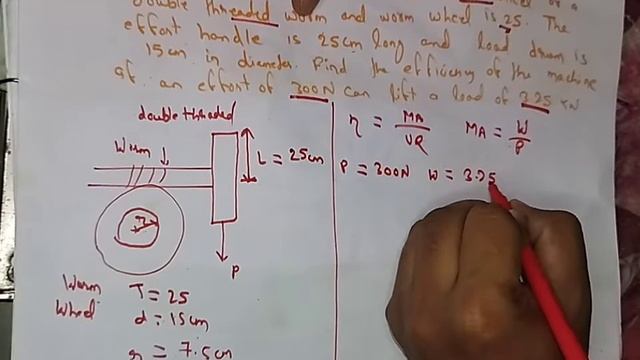 double threaded worm and worm wheel is 25. The
effort handle is 25cm long and load drum is
15cm in diameter. Find the efficiency of the machine
if an effort of 300N can lift a load of 3.25 KN
double threaded
Worm
L = 25cm
P
Worm
Wheel
T = 25
d = 15cm
r = 7.5cm
η = MA/VR MA = W/P
P = 300N W = 3.25